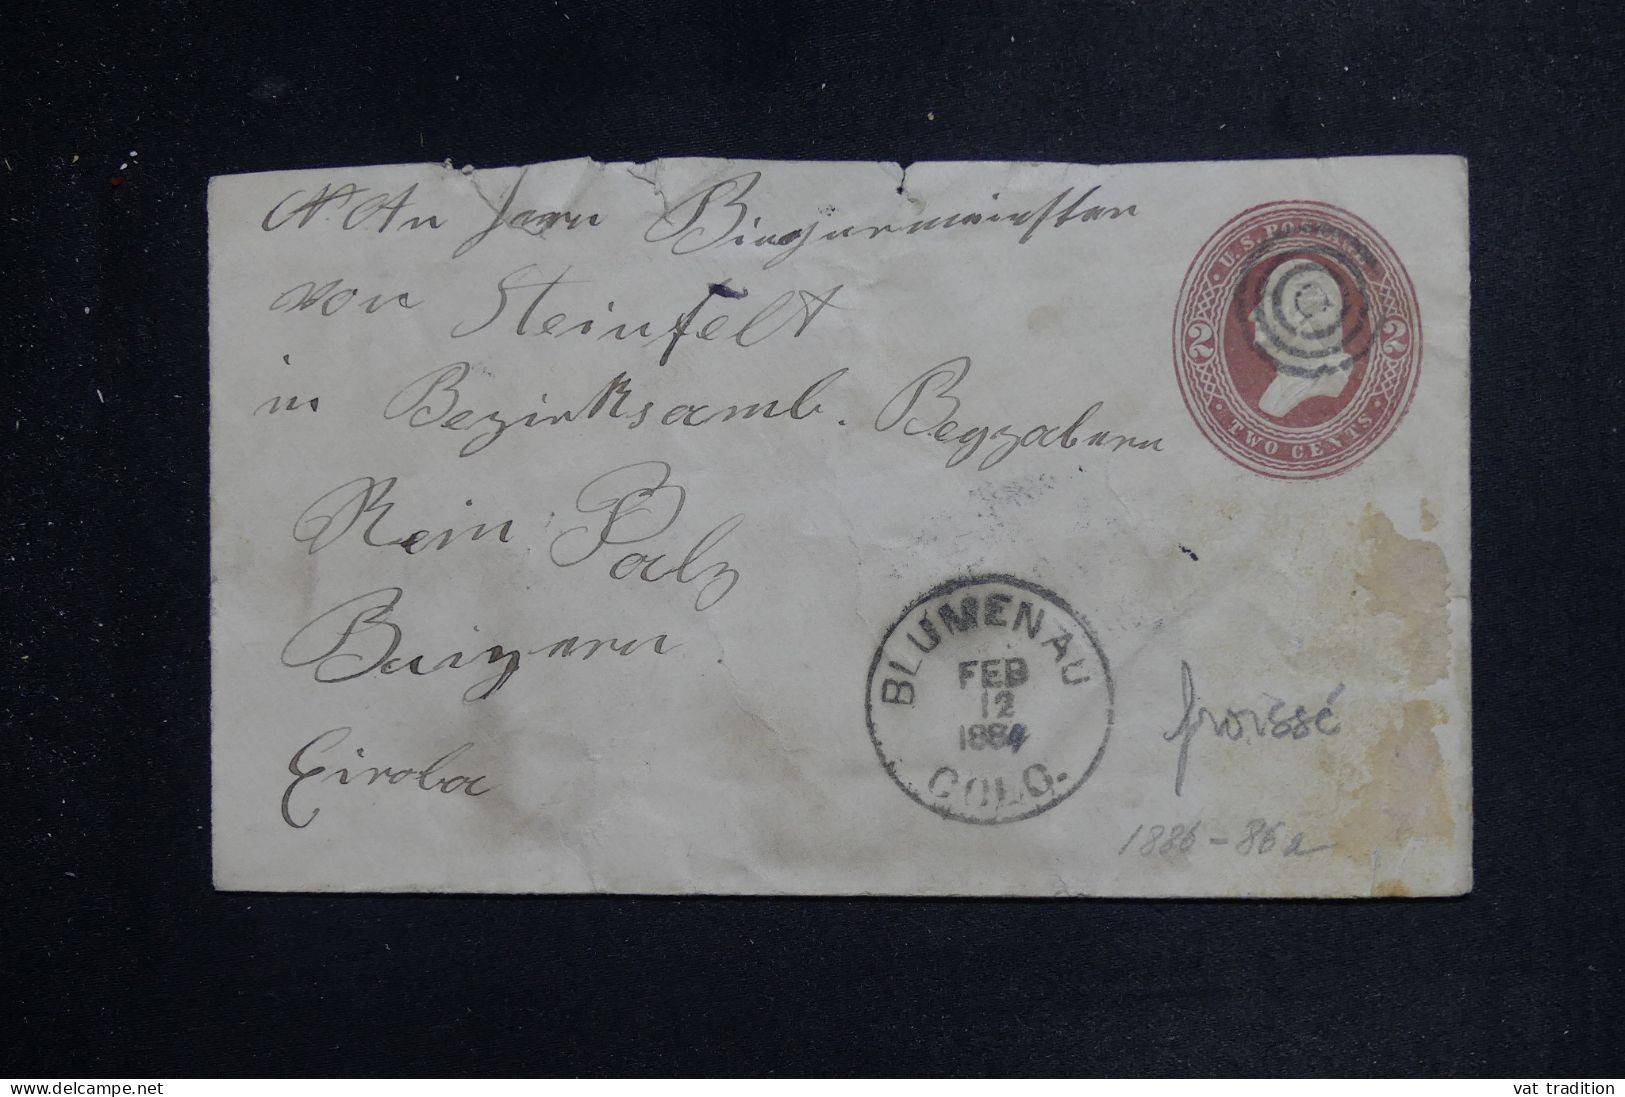 An Herrn Biurgurmeinstter
von Steinfelt
in Bezirksamb. Begzabern
Rein Palz
Baiyern
Eiroba
U.S. POSTAGE
2 2
TWO CENTS
BLUMENAU
FEB
12
1884
COLO.
froissé
1886-86a
www.delcampe.net
vat tradition